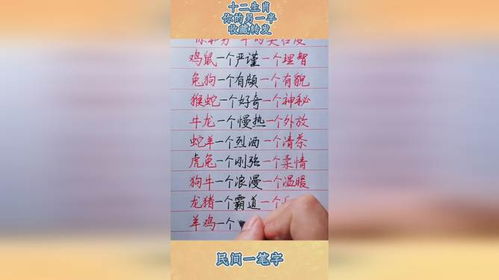 十二生肖
你的另一半
收藏转发
你和另一半的契合度
鸡鼠一个严谨一个理智
兔狗一个有颜一个有靓
猴蛇一个好奇一个神秘
牛龙一个慢热一个外放
蛇羊一个烈酒一个清茶
虎兔一个刚强一个柔情
狗牛一个浪漫一个温暖
龙猪一个霸道一个
羊鸡一个
民间一笔字